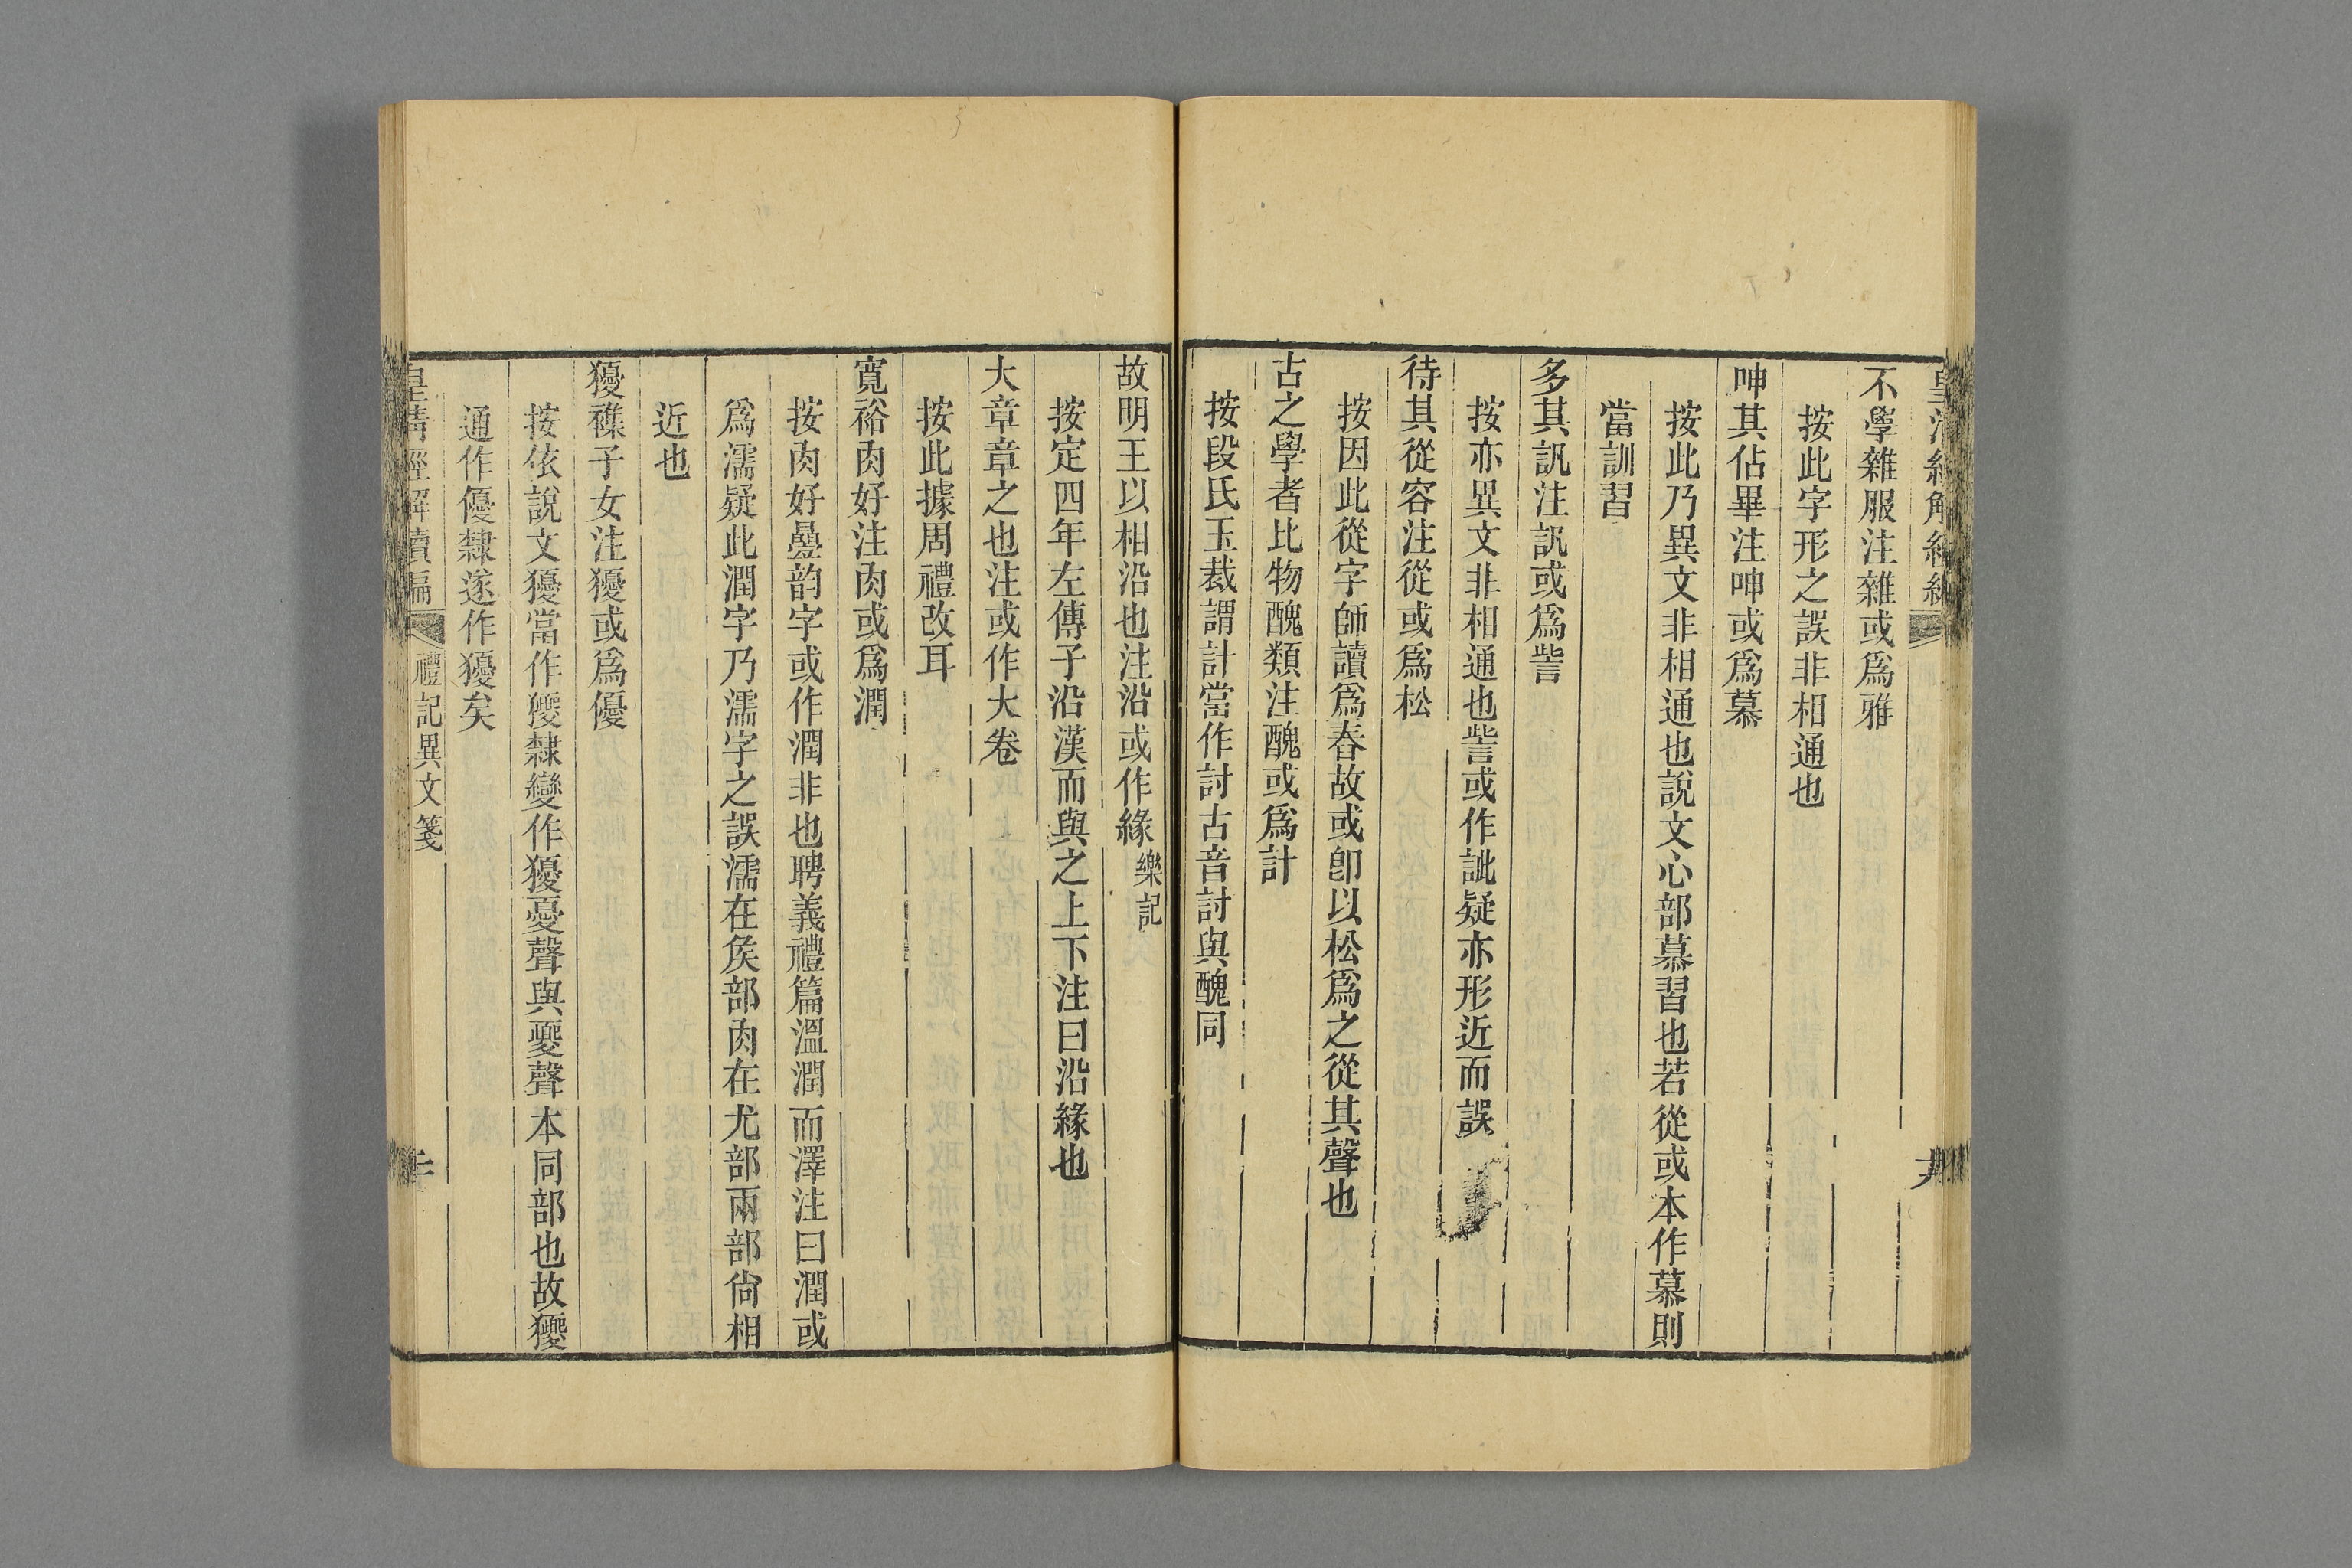 不學雜服注雜或爲雅
按此字形之誤非相通也
呻其佔畢注呻或爲慕
按此乃異文非相通也說文心部慕習也若從或本作慕則
當訓習
多其訊注訊或爲訾
按亦異文非相通也訾或作訿疑亦形近而誤
待其從容注從或爲松
按因此從字師讀爲舂故或卽以松爲之從其聲也
古之學者比物醜類注醜或爲計
按段氏玉裁謂計當作討古音討與醜同
故明王以相沿也注沿或作緣樂記
按定四年左傳子沿漢而與之上下注曰沿緣也
大章章之也注或作大卷
按此據周禮改耳
寬裕肉好注肉或爲潤
按肉好疊韵字或作潤非也聘義禮篇溫潤而澤注曰潤或
爲濡疑此潤字乃濡字之誤濡在矦部肉在尤部兩部尙相
近也
獶襍子女注獶或爲優
按依說文獶當作獿隸變作獶憂聲與夒聲本同部也故獿
通作優隸遂作獶矣
皇淸經解續編
禮記異文箋